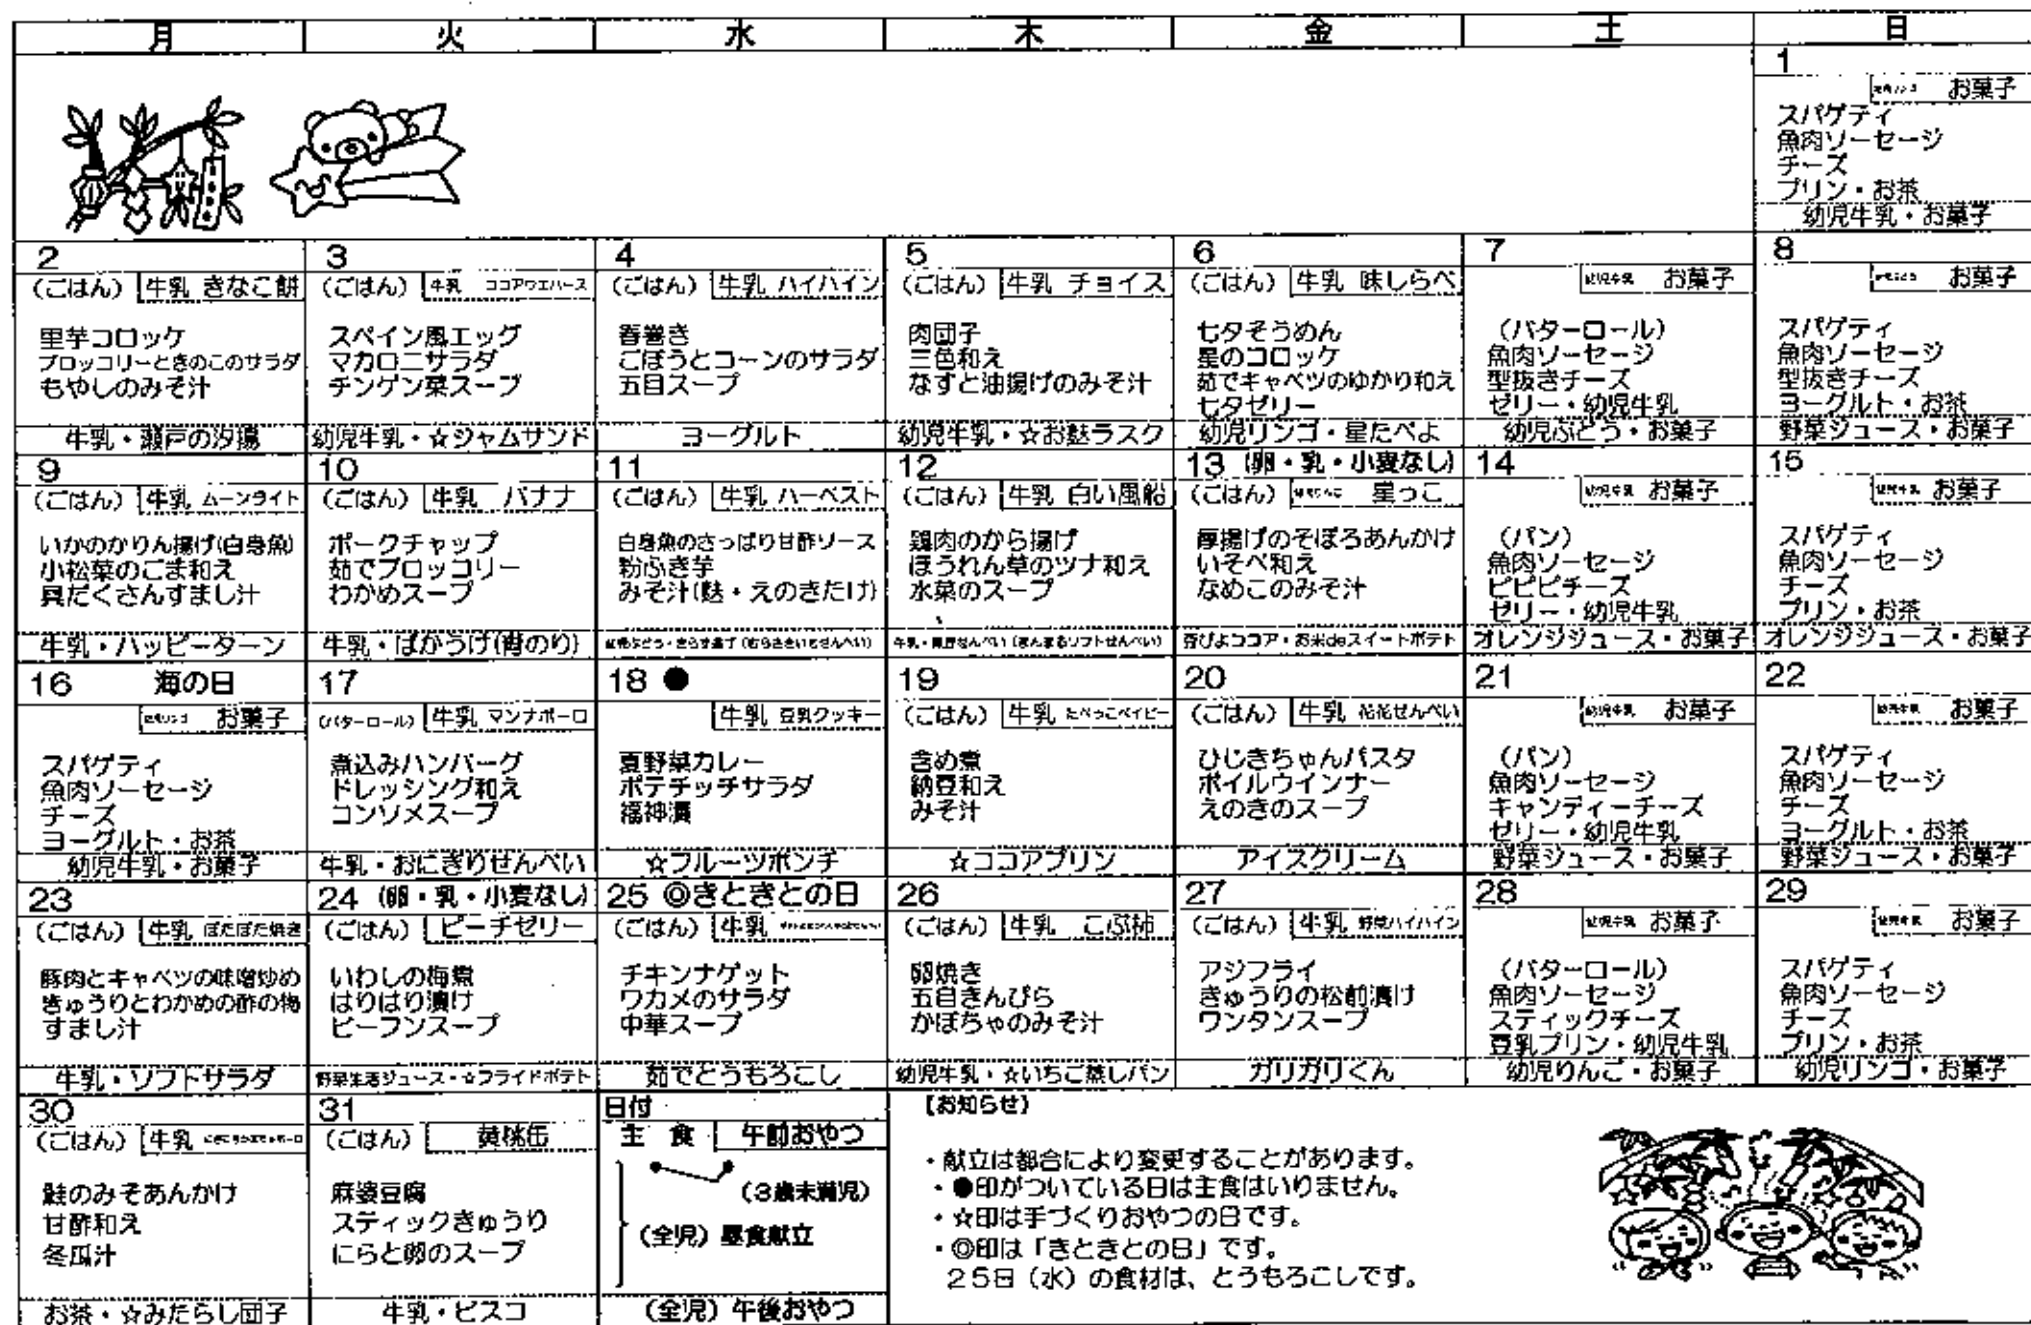 月 火 水 木 金 土 日
1
お菓子
スパゲティ
魚肉ソーセージ
チーズ
プリン・お茶
幼児牛乳・お菓子
2
(ごはん) 牛乳 きなこ餅
里芋コロッケ
ブロッコリーときのこのサラダ
もやしのみそ汁
牛乳・瀬戸の汐揚
3
(ごはん) 牛乳 ココアウエハース
スペイン風エッグ
マカロニサラダ
チンゲン菜スープ
幼児牛乳・☆ジャムサンド
4
(ごはん) 牛乳 ハイハイン
春巻き
ごぼうとコーンのサラダ
五目スープ
ヨーグルト
5
(ごはん) 牛乳 チョイス
肉団子
三色和え
なすと油揚げのみそ汁
幼児牛乳・☆お麩ラスク
6
(ごはん) 牛乳 味しらべ
七夕そうめん
星のコロッケ
茹でキャベツのゆかり和え
七夕ゼリー
幼児リンゴ・星たべよ
7
幼児牛乳 お菓子
(バターロール)
魚肉ソーセージ
型抜きチーズ
ゼリー・幼児牛乳
幼児ぶどう・お菓子
8
お菓子
スパゲティ
魚肉ソーセージ
型抜きチーズ
ヨーグルト・お茶
野菜ジュース・お菓子
9
(ごはん) 牛乳 ムーンライト
いかのかりん揚げ(白身魚)
小松菜のごま和え
具だくさんすまし汁
牛乳・ハッピーターン
10
(ごはん) 牛乳 バナナ
ポークチャップ
茹でブロッコリー
わかめスープ
牛乳・ばかうけ(青のり)
11
(ごはん) 牛乳 ハーベスト
白身魚のさっぱり甘酢ソース
粉ふき芋
みそ汁(麩・えのきたけ)
12
(ごはん) 牛乳 白い風船
鶏肉のから揚げ
ほうれん草のツナ和え
水菜のスープ
13 (卵・乳・小麦なし)
(ごはん) 星っこ
厚揚げのそぼろあんかけ
いそべ和え
なめこのみそ汁
豆ぴよココア・お米deスイートポテト
14
幼児牛乳 お菓子
(パン)
魚肉ソーセージ
ピピピチーズ
ゼリー・幼児牛乳
オレンジジュース・お菓子
15
幼児牛乳 お菓子
スパゲティ
魚肉ソーセージ
チーズ
プリン・お茶
オレンジジュース・お菓子
16 海の日
お菓子
スパゲティ
魚肉ソーセージ
チーズ
ヨーグルト・お茶
幼児牛乳・お菓子
17
(バターロール) 牛乳 マンナボーロ
煮込みハンバーグ
ドレッシング和え
コンソメスープ
牛乳・おにぎりせんべい
18 ●
牛乳 豆乳クッキー
夏野菜カレー
ポテチッチサラダ
福神漬
☆フルーツポンチ
19
(ごはん) 牛乳 たべっこベイビー
含め煮
納豆和え
みそ汁
☆ココアプリン
20
(ごはん) 牛乳 花花せんべい
ひじきちゃんパスタ
ボイルウインナー
えのきのスープ
アイスクリーム
21
幼児牛乳 お菓子
(パン)
魚肉ソーセージ
キャンディーチーズ
ゼリー・幼児牛乳
野菜ジュース・お菓子
22
幼児牛乳 お菓子
スパゲティ
魚肉ソーセージ
チーズ
ヨーグルト・お茶
野菜ジュース・お菓子
23
(ごはん) 牛乳 ぽたぽた焼き
豚肉とキャベツの味噌炒め
きゅうりとわかめの酢の物
すまし汁
牛乳・ソフトサラダ
24 (卵・乳・小麦なし)
(ごはん) ピーチゼリー
いわしの梅煮
はりはり漬け
ビーフンスープ
野菜生活ジュース・☆フライドポテト
25 ◎きときとの日
(ごはん) 牛乳
チキンナゲット
ワカメのサラダ
中華スープ
茹でとうもろこし
26
(ごはん) 牛乳 こぶ柿
卵焼き
五目きんぴら
かぼちゃのみそ汁
幼児牛乳・☆いちご蒸しパン
27
(ごはん) 牛乳 野菜ハイハイン
アジフライ
きゅうりの松前漬け
ワンタンスープ
ガリガリくん
28
幼児牛乳 お菓子
(バターロール)
魚肉ソーセージ
スティックチーズ
豆乳プリン・幼児牛乳
幼児りんご・お菓子
29
幼児牛乳 お菓子
スパゲティ
魚肉ソーセージ
チーズ
プリン・お茶
幼児リンゴ・お菓子
30
(ごはん) 牛乳
鮭のみそあんかけ
甘酢和え
冬瓜汁
お茶・☆みたらし団子
31
(ごはん) 黄桃缶
麻婆豆腐
スティックきゅうり
にらと卵のスープ
牛乳・ビスコ
日付
主 食 午前おやつ
(3歳未満児)
(全児) 昼食献立
(全児) 午後おやつ
【お知らせ】
・献立は都合により変更することがあります。
・●印がついている日は主食はいりません。
・☆印は手づくりおやつの日です。
・◎印は「きときとの日」です。
25日(水)の食材は、とうもろこしです。